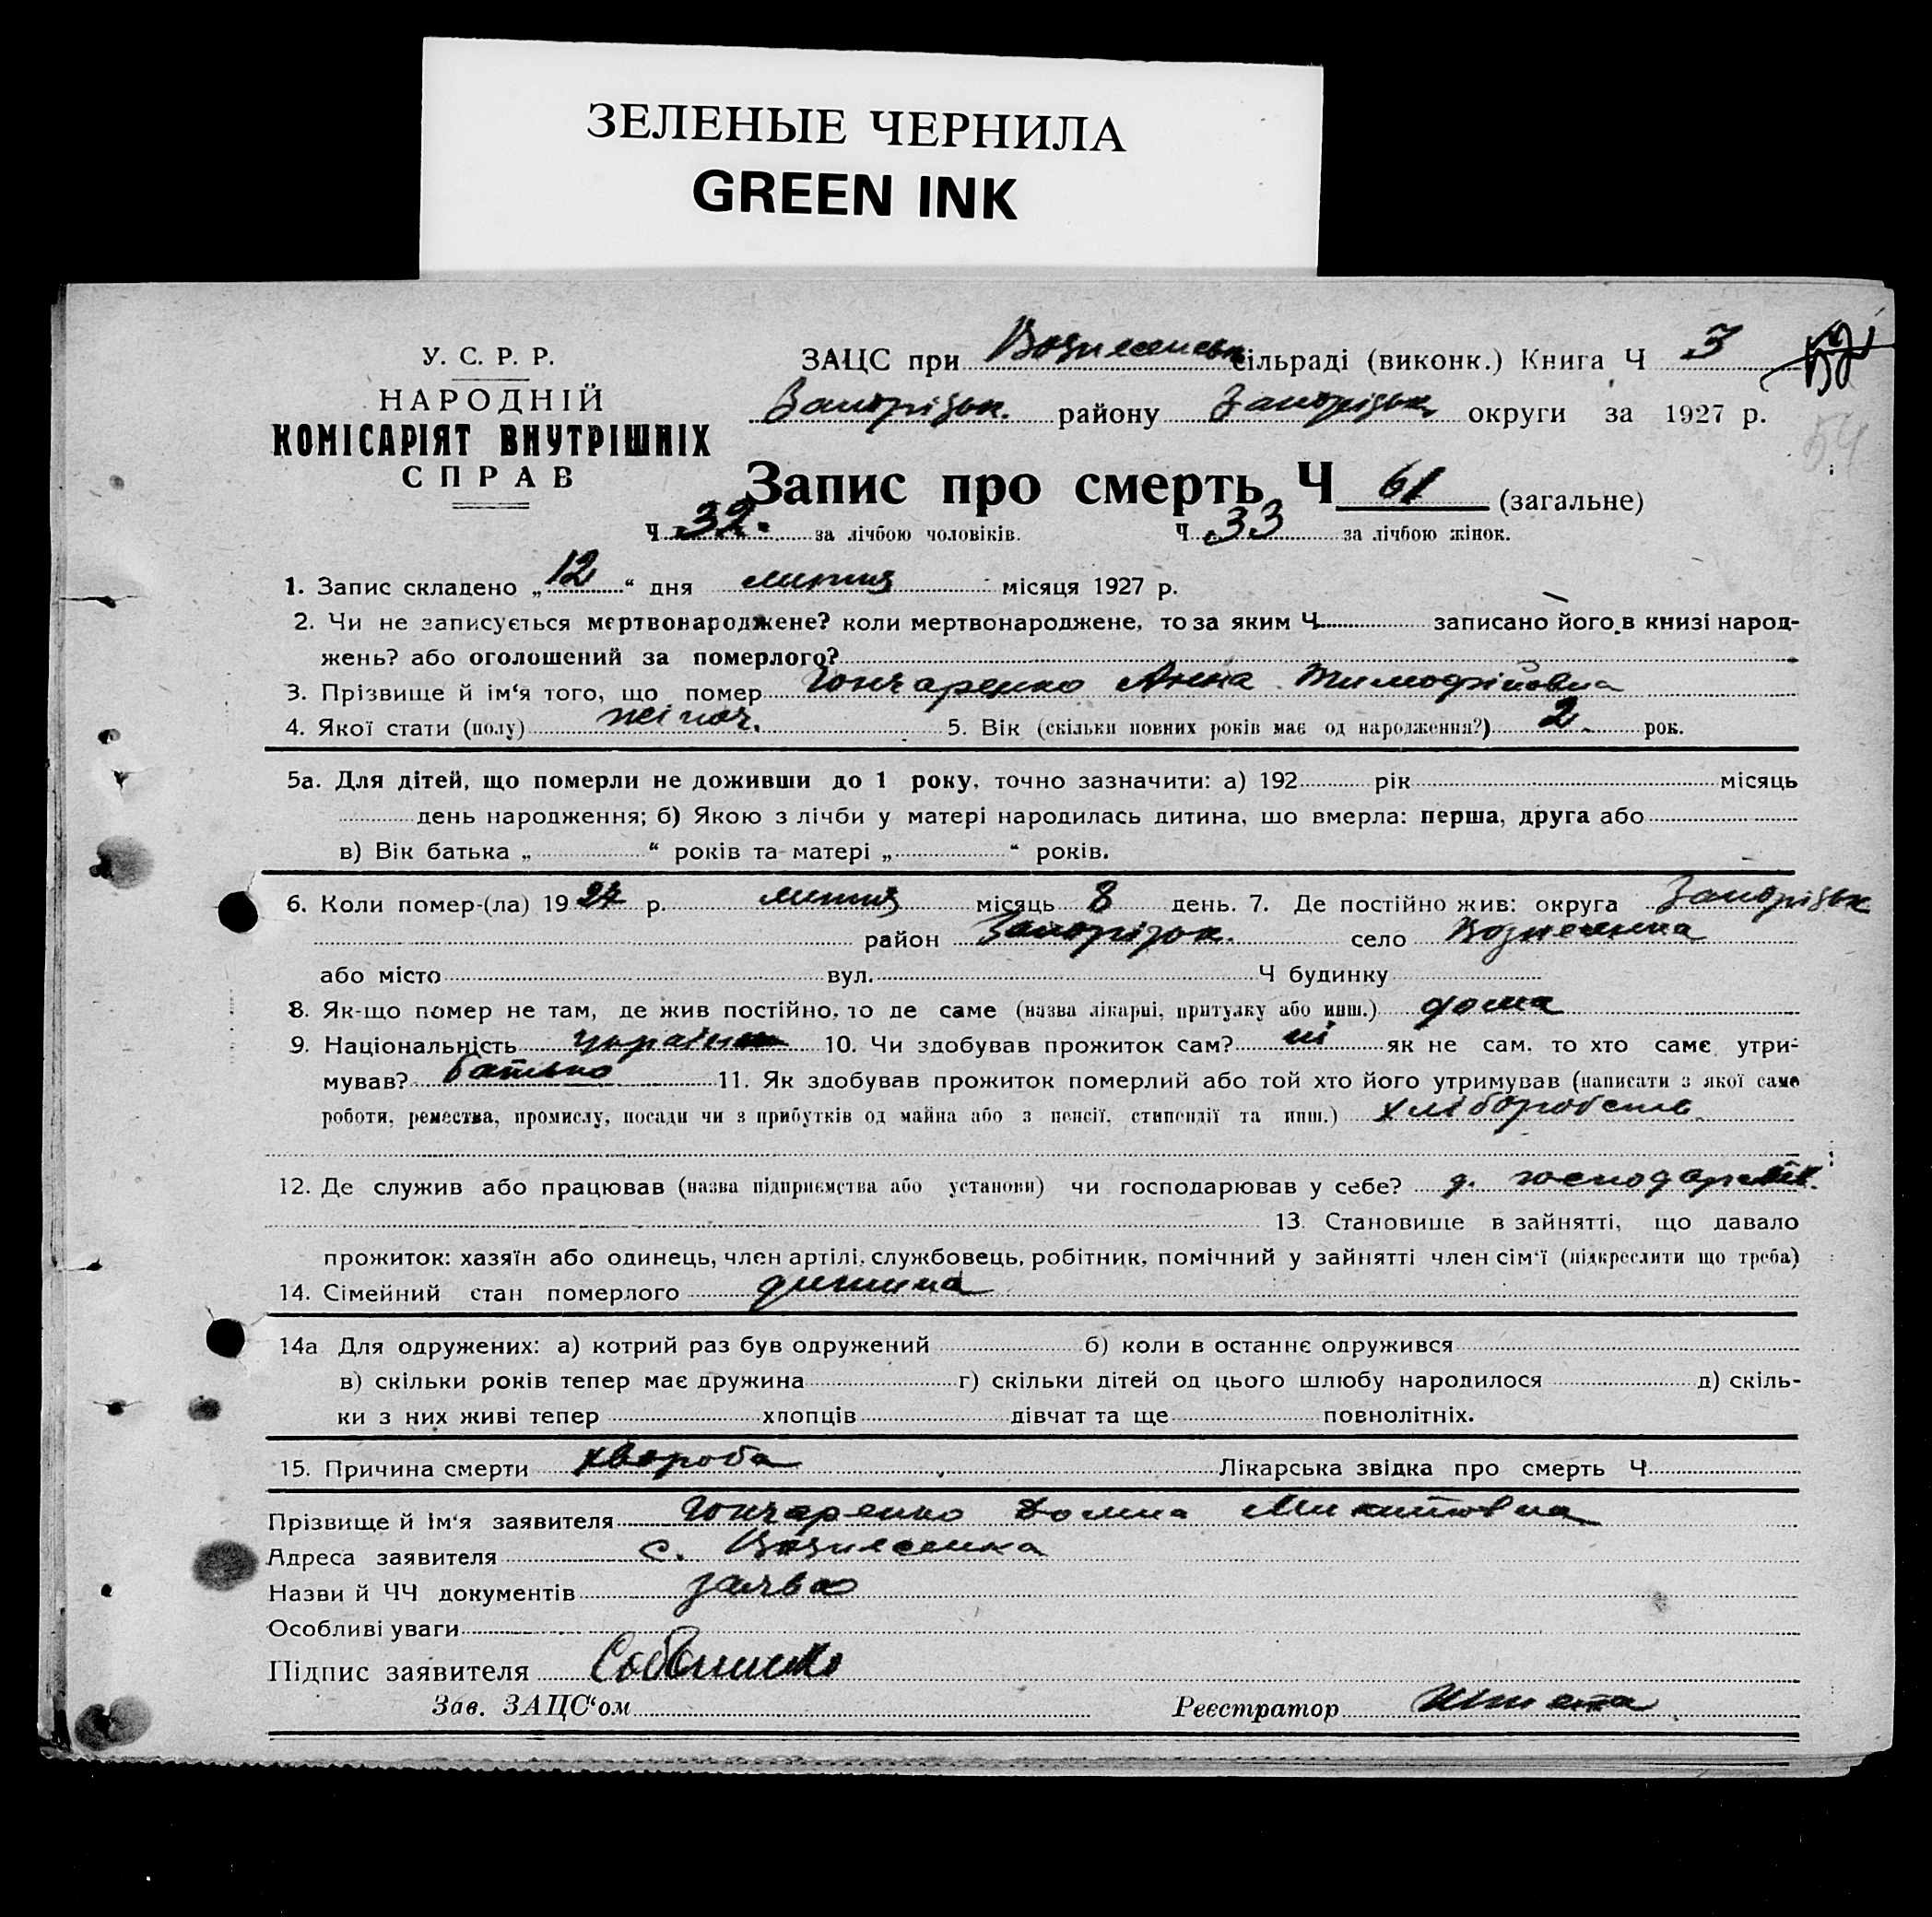 ЗЕЛЕНЫЕ ЧЕРНИЛА
GREEN INK
У. С. Р. Р.
НАРОДНІЙ
КОМІСАРІЯТ ВНУТРІШНІХ
СПРАВ
ЗАЦС при Вознесенськ сільраді (виконк.) Книга Ч 3
Запорізьк. району Запорізьк. округи за 1927 р.
54
Запис про смерть Ч 61 (загальне)
Ч 32. за лічбою чоловіків. Ч 33 за лічбою жінок.
1. Запис складено „12“ дня липня місяця 1927 р.
2. Чи не записується мертвонароджене? коли мертвонароджене, то за яким Ч записано його в книзі народ-
жень? або оголошений за померлого?
3. Прізвище й ім‘я того, що помер Гончаренко Анна Тимофійовна
4. Якої стати (полу) жіноч. 5. Вік (скільки повних років має од народження?) 2 рок.
5а. Для дітей, що померли не доживши до 1 року, точно зазначити: а) 192 рік місяць
день народження; б) Якою з лічби у матері народилась дитина, що вмерла: перша, друга або
в) Вік батька „ “ років та матері „ “ років.
6. Коли помер-(ла) 1927 р. липня місяць 8 день. 7. Де постійно жив: округа Запорізьк
район Запорізьк. село Вознесенка
або місто вул. Ч будинку
8. Як-що помер не там, де жив постійно, то де саме (назва лікарні, притулку або инш.) дома
9. Національність україн 10. Чи здобував прожиток сам? ні як не сам, то хто саме утри-
мував? батько 11. Як здобував прожиток померлий або той хто його утримував (написати з якої саме
роботи, ремества, промислу, посади чи з прибутків од майна або з пенсії, стипендії та инш.) хліборобств
12. Де служив або працював (назва підприємства або установи) чи господарював у себе?
13. Становище в зайнятті, що давало
прожиток: хазяїн або одинець, член артілі, службовець, робітник, помічний у зайнятті член сім‘ї (підкреслити що треба)
14. Сімейний стан померлого дитина
14а Для одружених: а) котрий раз був одружений б) коли в останнє одружився
в) скільки років тепер має дружина г) скільки дітей од цього шлюбу народилося д) скіль-
ки з них живі тепер хлопців дівчат та ще повнолітніх.
15. Причина смерти хвороба Лікарська звідка про смерть Ч
Прізвище й Ім‘я заявителя Гончаренко Домна Микитовна
Адреса заявителя с. Вознесенка
Назви й ЧЧ документів заява
Особливі уваги
Підпис заявителя
Зав. ЗАЦС‘ом Реєстратор